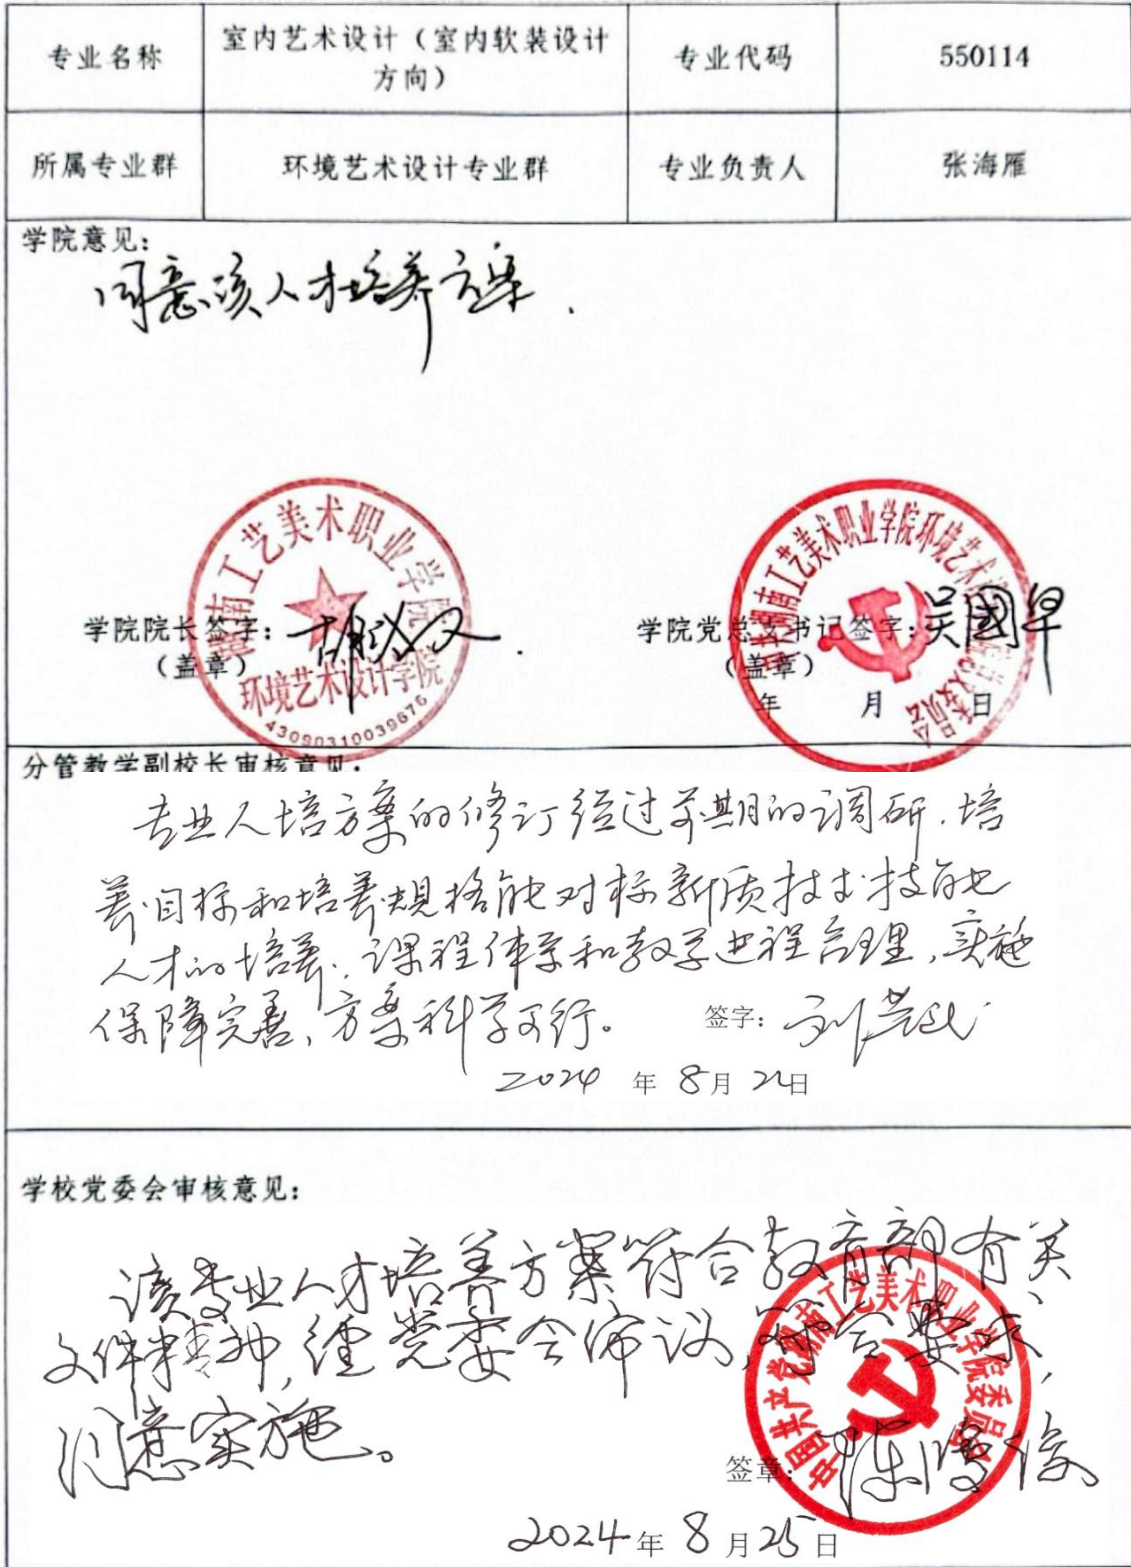 专业名称
室内艺术设计（室内软装设计
方向）
专业代码
550114
所属专业群
环境艺术设计专业群
专业负责人
张海雁
学院意见：
同意该人才培养方案.
湖南工艺美术职业学院
环境艺术设计学院
43090310039676
学院院长签字：
（盖章）
学院党总支书记签字：吴國早
（盖章）
年 月 日
分管教学副校长审核意见：
专业人培方案的修订经过前期的调研，培
养目标和培养规格能对标新质技术技能
人才的培养，课程体系和教学进程合理，实施
保障完善，方案科学可行。
签字：
2024 年 8月 22日
学校党委会审核意见：
该专业人才培养方案符合教育部有关
文件精神，经党委会审议，符合要求，
同意实施。
中国共产党湖南工艺美术职业学院委员会
签章：
2024年 8月25日